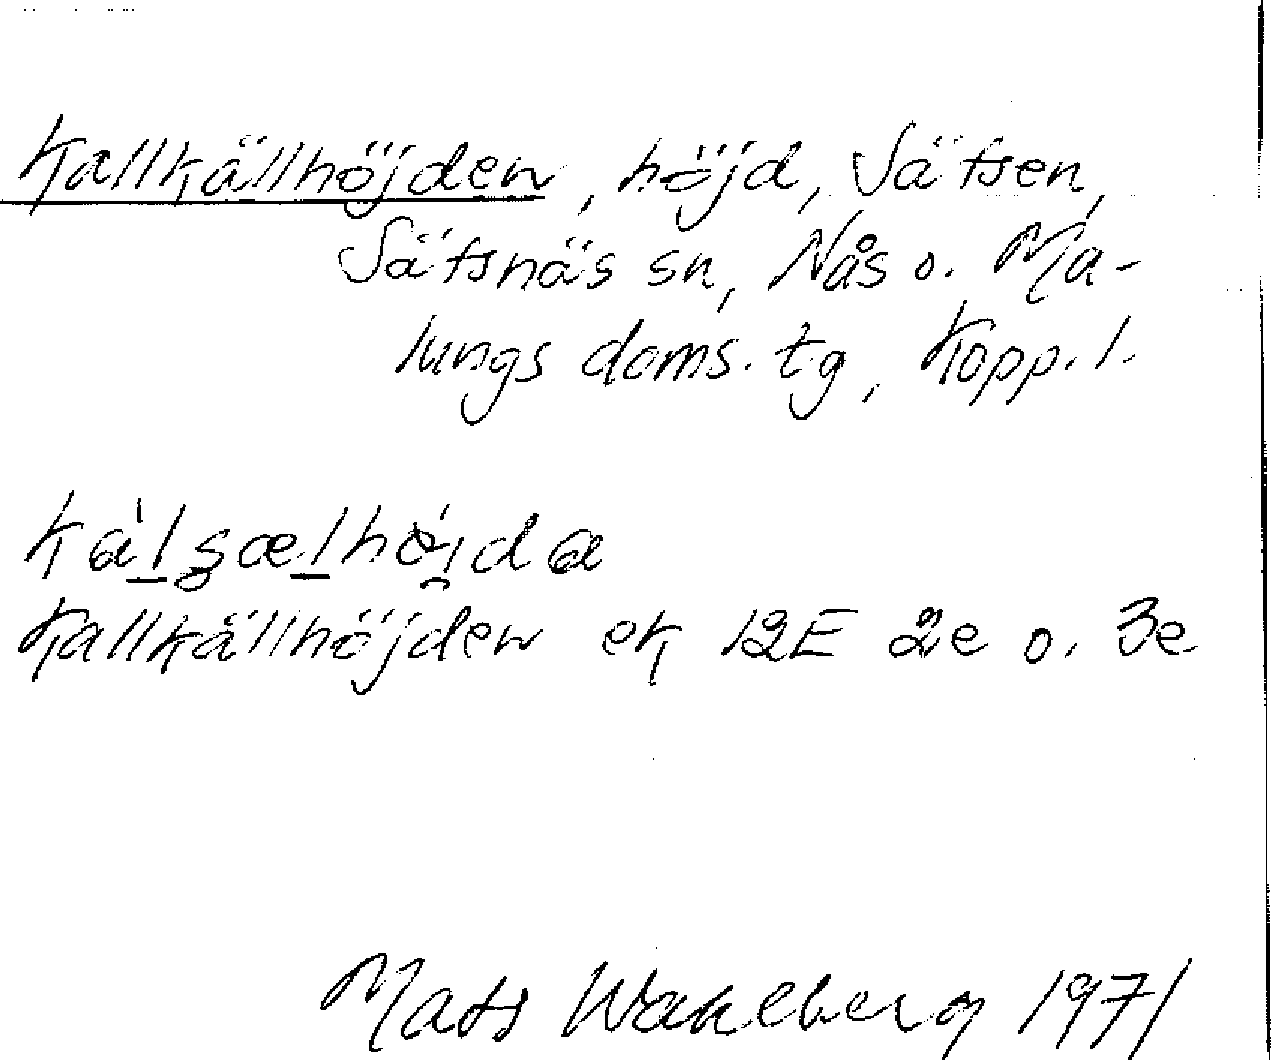 Kallkällhöjden, höjd, Sätsen,
Sätsnäs sn, Nås o. Ma-
lungs doms. tg, Kopp. l.
Kallkällhöjden ek 12E 2e o. 3e
Mats Wahlberg 1971